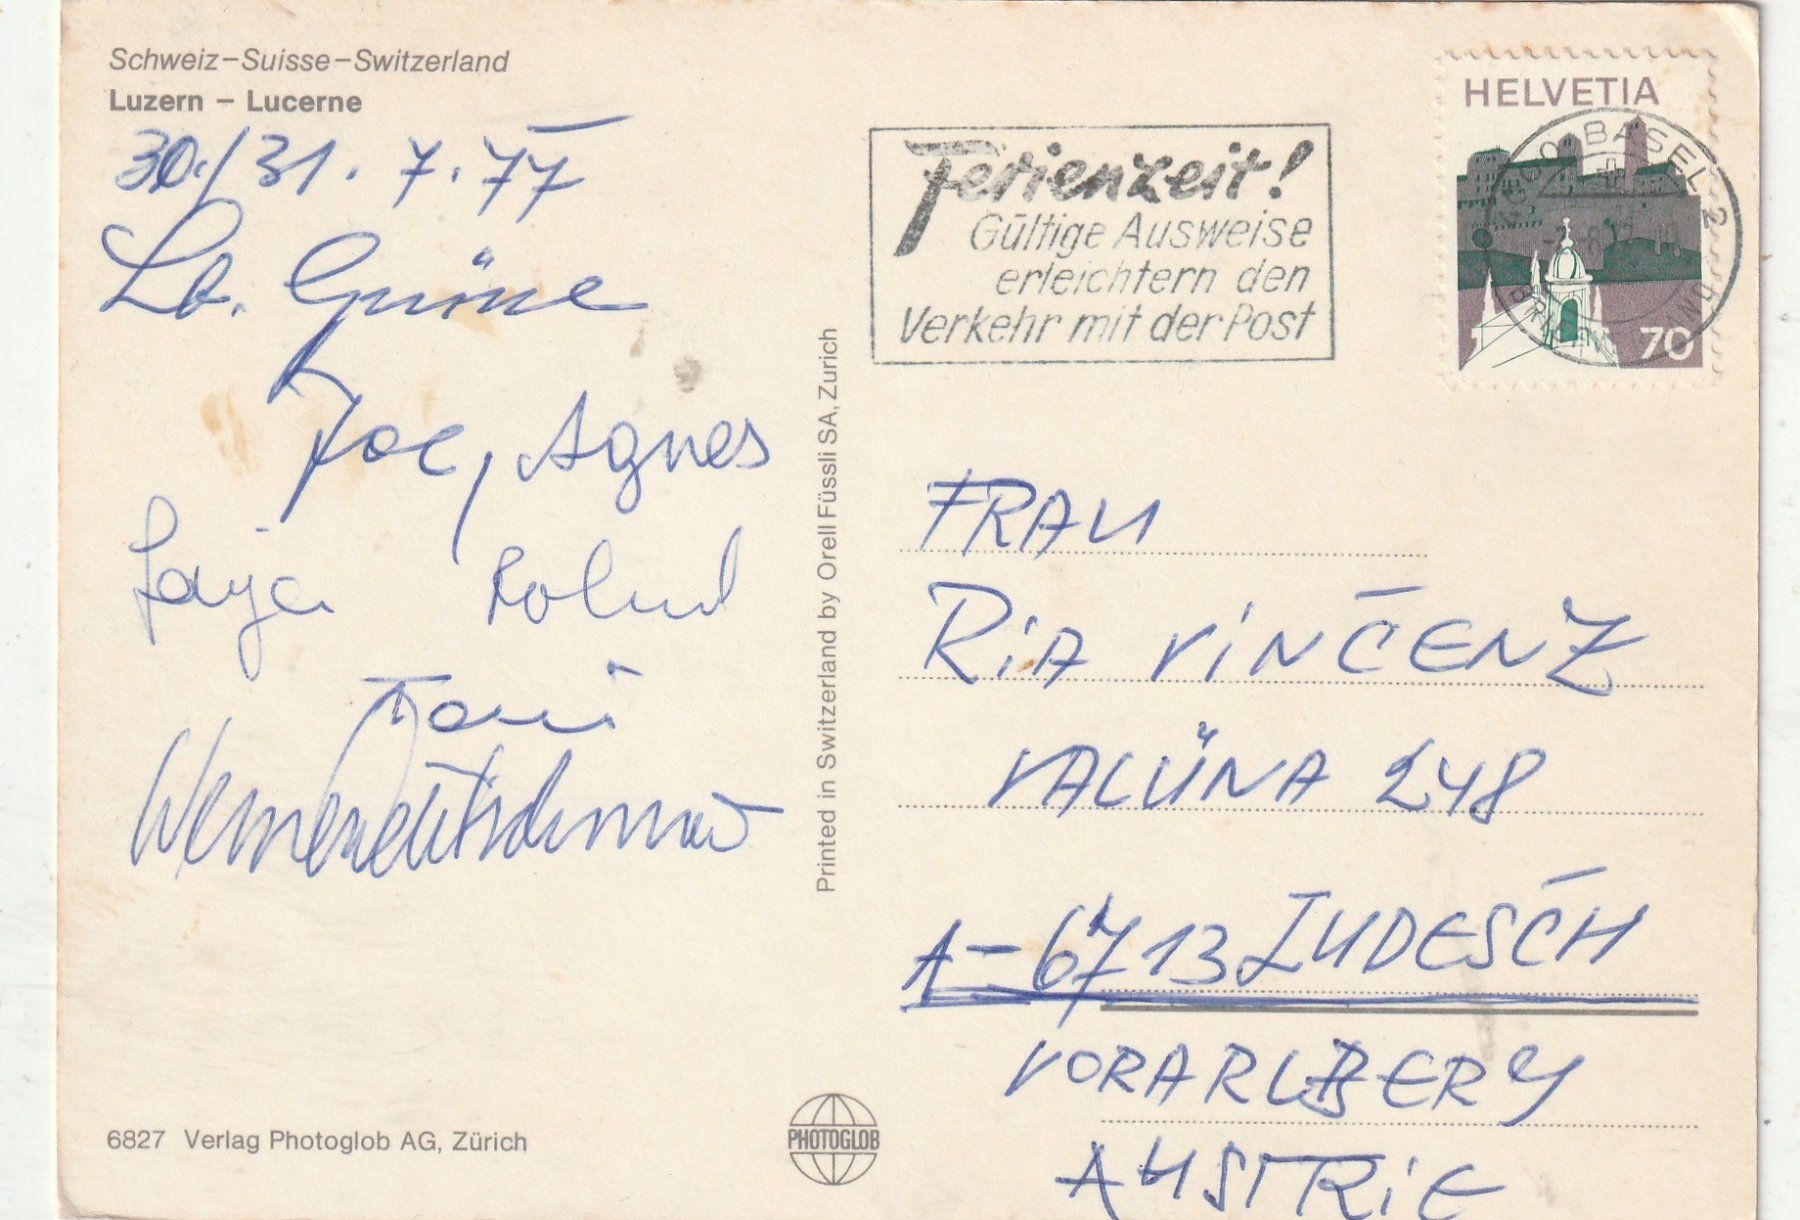 Schweiz–Suisse–Switzerland
Luzern – Lucerne
30./31. 7. 77
Lb. Grüsse
Joe, Agnes
Roland
Toni
HELVETIA
70
4000 BASEL 2
Ferienzeit!
Gültige Ausweise
erleichtern den
Verkehr mit der Post
Printed in Switzerland by Orell Füssli SA, Zurich
FRAU
RiA ViNCENZ
VALÜNA 248
A-6713 LUDESCH
VORARLBERG
AUSTRiE
6827 Verlag Photoglob AG, Zürich
PHOTOGLOB